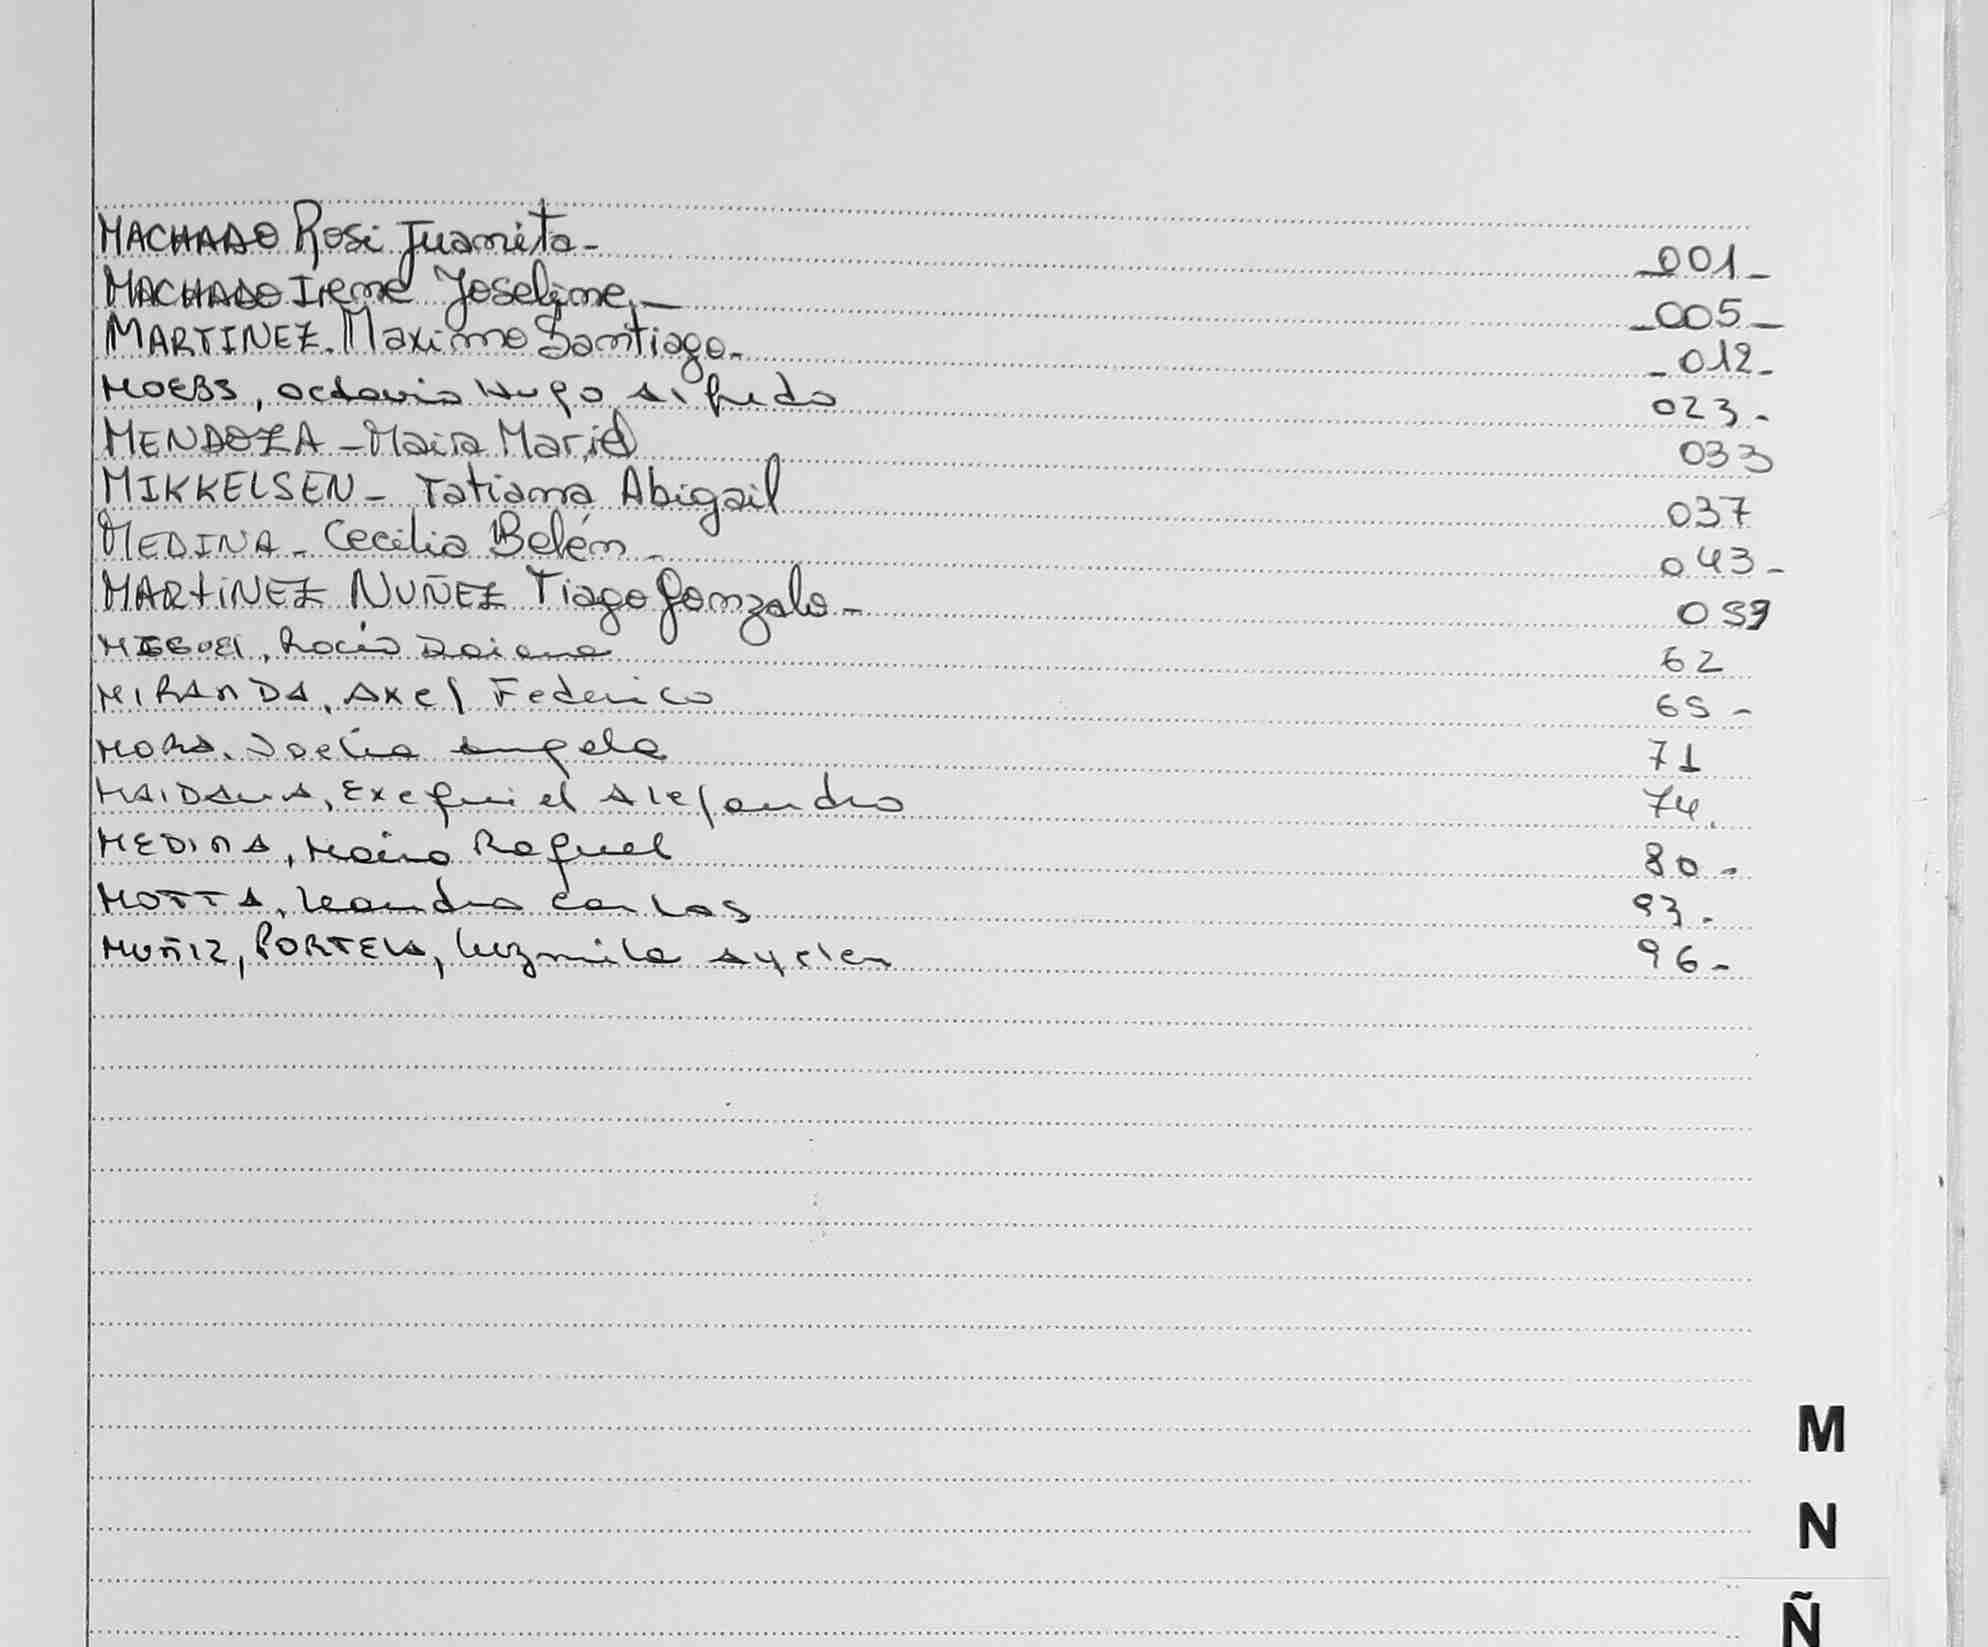 MACHADO Rosi Juanita- _001_
MACHADO Irene Joseline_ _005_
MARTINEZ. Maximo Santiago. _012_
MOEBS, Octavio Hugo Alfredo 023-
MENDOZA - Maira Mariel 033
MIKKELSEN - Tatiana Abigail 037
MEDINA - Cecilia Belén - 043-
MARTINEZ NUÑEZ Tiago Gonzalo- 059
MIGUEL, Rocío Daiana 62
MIRANDA, Axel Federico 65-
MORA, Angela 71
MAIDANA, Exequiel Alejandro 74.
MEDINA, Maira Raquel 80-
MOTTA, Leandro Carlos 93-
MUÑIZ, PORTELA, Luzmila Ayelen 96-
M
N
Ñ